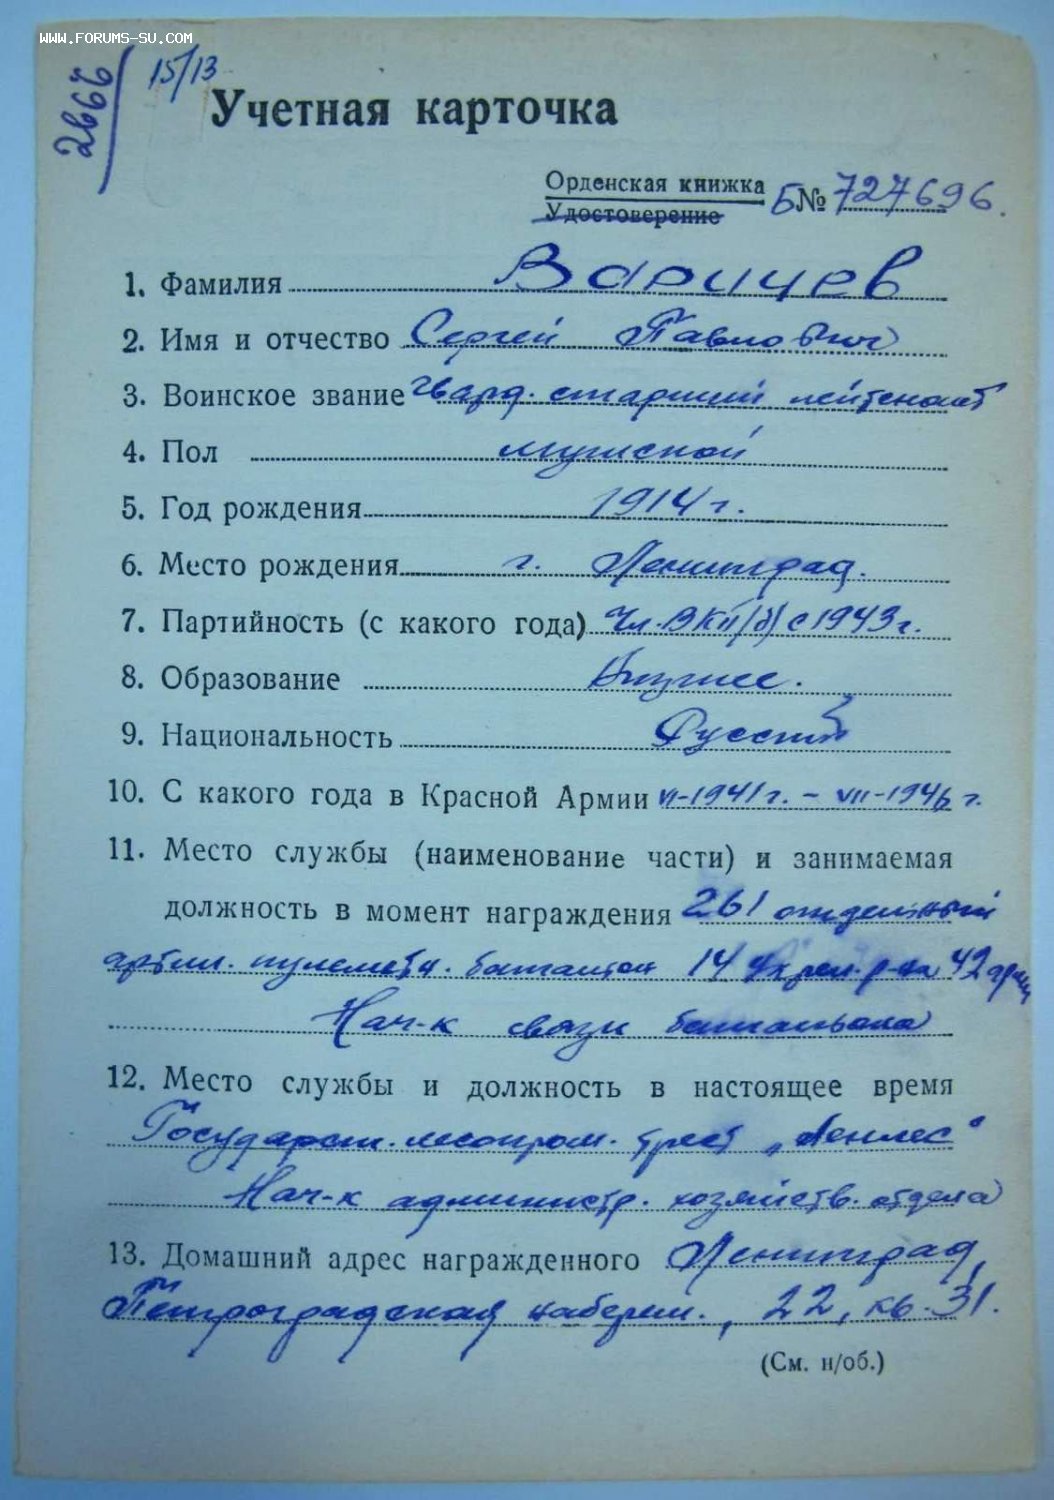 WWW.FORUMS-SU.COM
15/13
Учетная карточка
Орденская книжка
Удостоверение
Б № 727696.
1. Фамилия Варичев
2. Имя и отчество Сергей Павлович
3. Воинское звание Гвард. старший лейтенант
4. Пол мужской
5. Год рождения 1914 г.
6. Место рождения г. Ленинград.
7. Партийность (с какого года) Чл. ВКП/б/ с 1943 г.
8. Образование Низшее.
9. Национальность Русский
10. С какого года в Красной Армии VI-1941 г. – VII-1946 г.
11. Место службы (наименование части) и занимаемая
должность в момент награждения 261 отдельный
артил. пулеметн. батальон 14 укреп. р-на 42 арм
Нач-к связи батальона
12. Место службы и должность в настоящее время
Государст. леспром. трест „Ленлес"
Нач-к администр. хозяйств. отдела
13. Домашний адрес награжденного Ленинград,
Петроградская набереж., 22, кв. 31.
(См. н/об.)